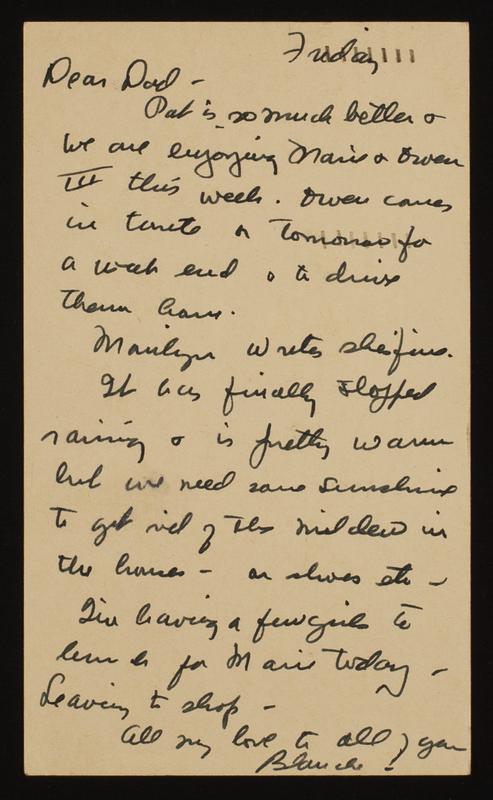 Friday
Dear Dad -
Pat is so much better &
we are enjoying Marie & Owen
III this week. Owen comes
in tonite or tomorrow for
a week end & to drive
them home.
Marilyn writes she's fine.
It has finally stopped
raining & is pretty warm
but we need some sunshine
to get rid of the mildew in
the house - on shoes etc -
I'm having a few girls to
lunch for Marie today -
Leaving to shop -
All my love to all of you
Blanche